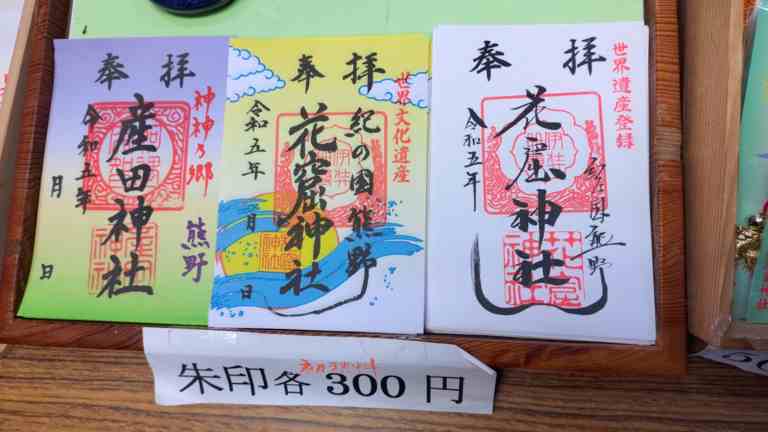 奉拝
神神乃郷
熊野
産田神社
令和五年
月
日
奉拝
世界文化遺産
紀の国熊野
花窟神社
令和五年
月
日
奉拝
世界遺産登録
花窟神社
令和五年
朱印各 300 円